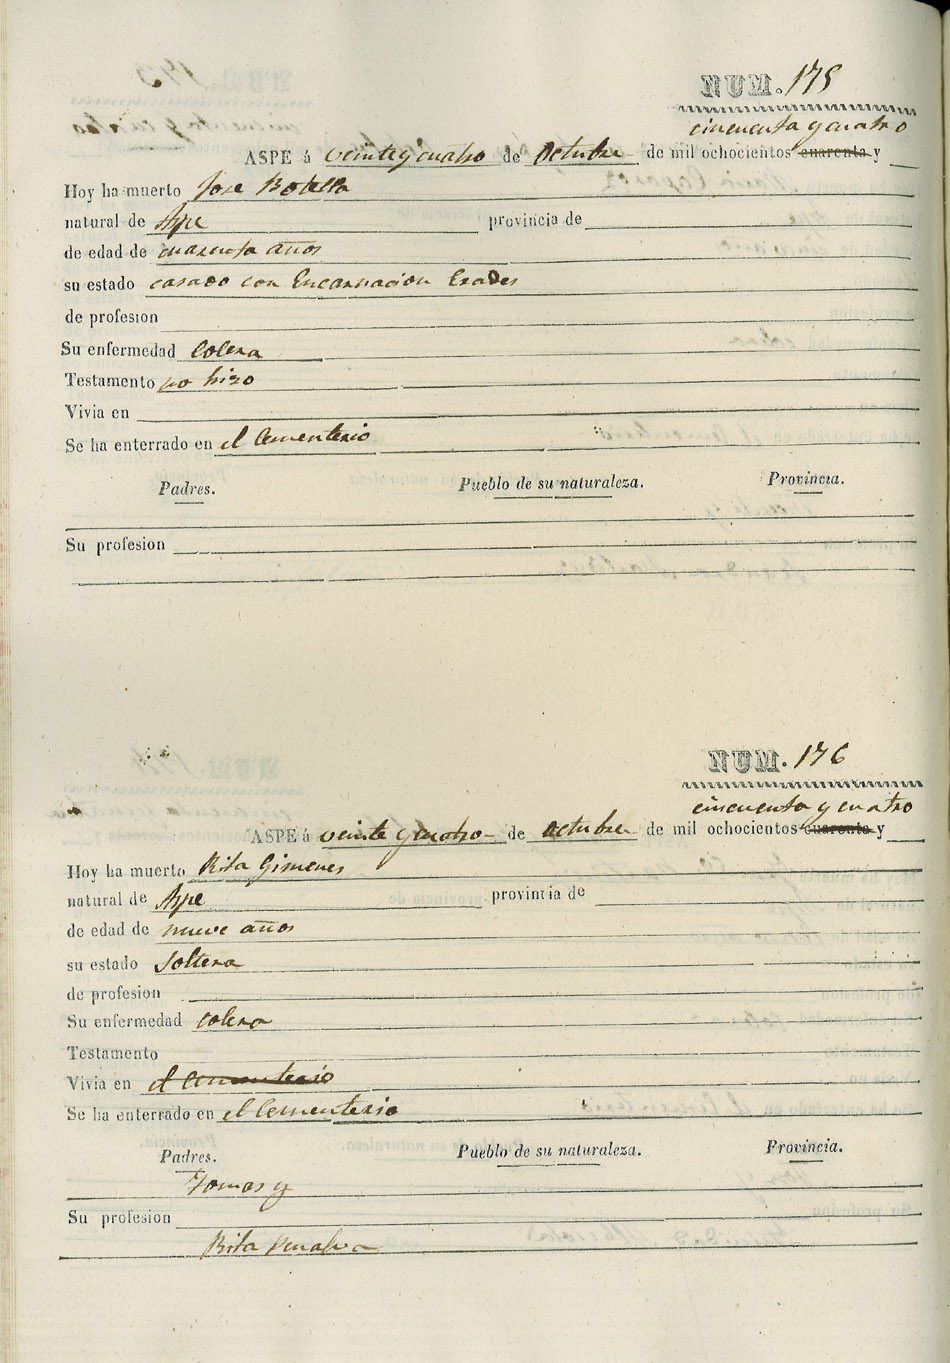 NUM. 175
cincuenta y cuatro
ASPE á veinte y cuatro de Octubre de mil ochocientos cuarenta y
Hoy ha muerto Jose Botella
natural de Aspe provincia de
de edad de cuarenta años
su estado casado con Encarnacion Erades
de profesion
Su enfermedad Colera
Testamento no hizo
Vivia en
Se ha enterrado en el Cementerio
Padres. Pueblo de su naturaleza. Provincia.
Su profesion
NUM. 176
cincuenta y cuatro
ASPE á veinte y cuatro de octubre de mil ochocientos cuarenta y
Hoy ha muerto Rita Gimenes
natural de Aspe provincia de
de edad de nueve años
su estado Soltera
de profesion
Su enfermedad colera
Testamento
Vivia en el Cementerio
Se ha enterrado en el Cementerio
Padres. Pueblo de su naturaleza. Provincia.
Tomas y
Su profesion
Rita Penalva